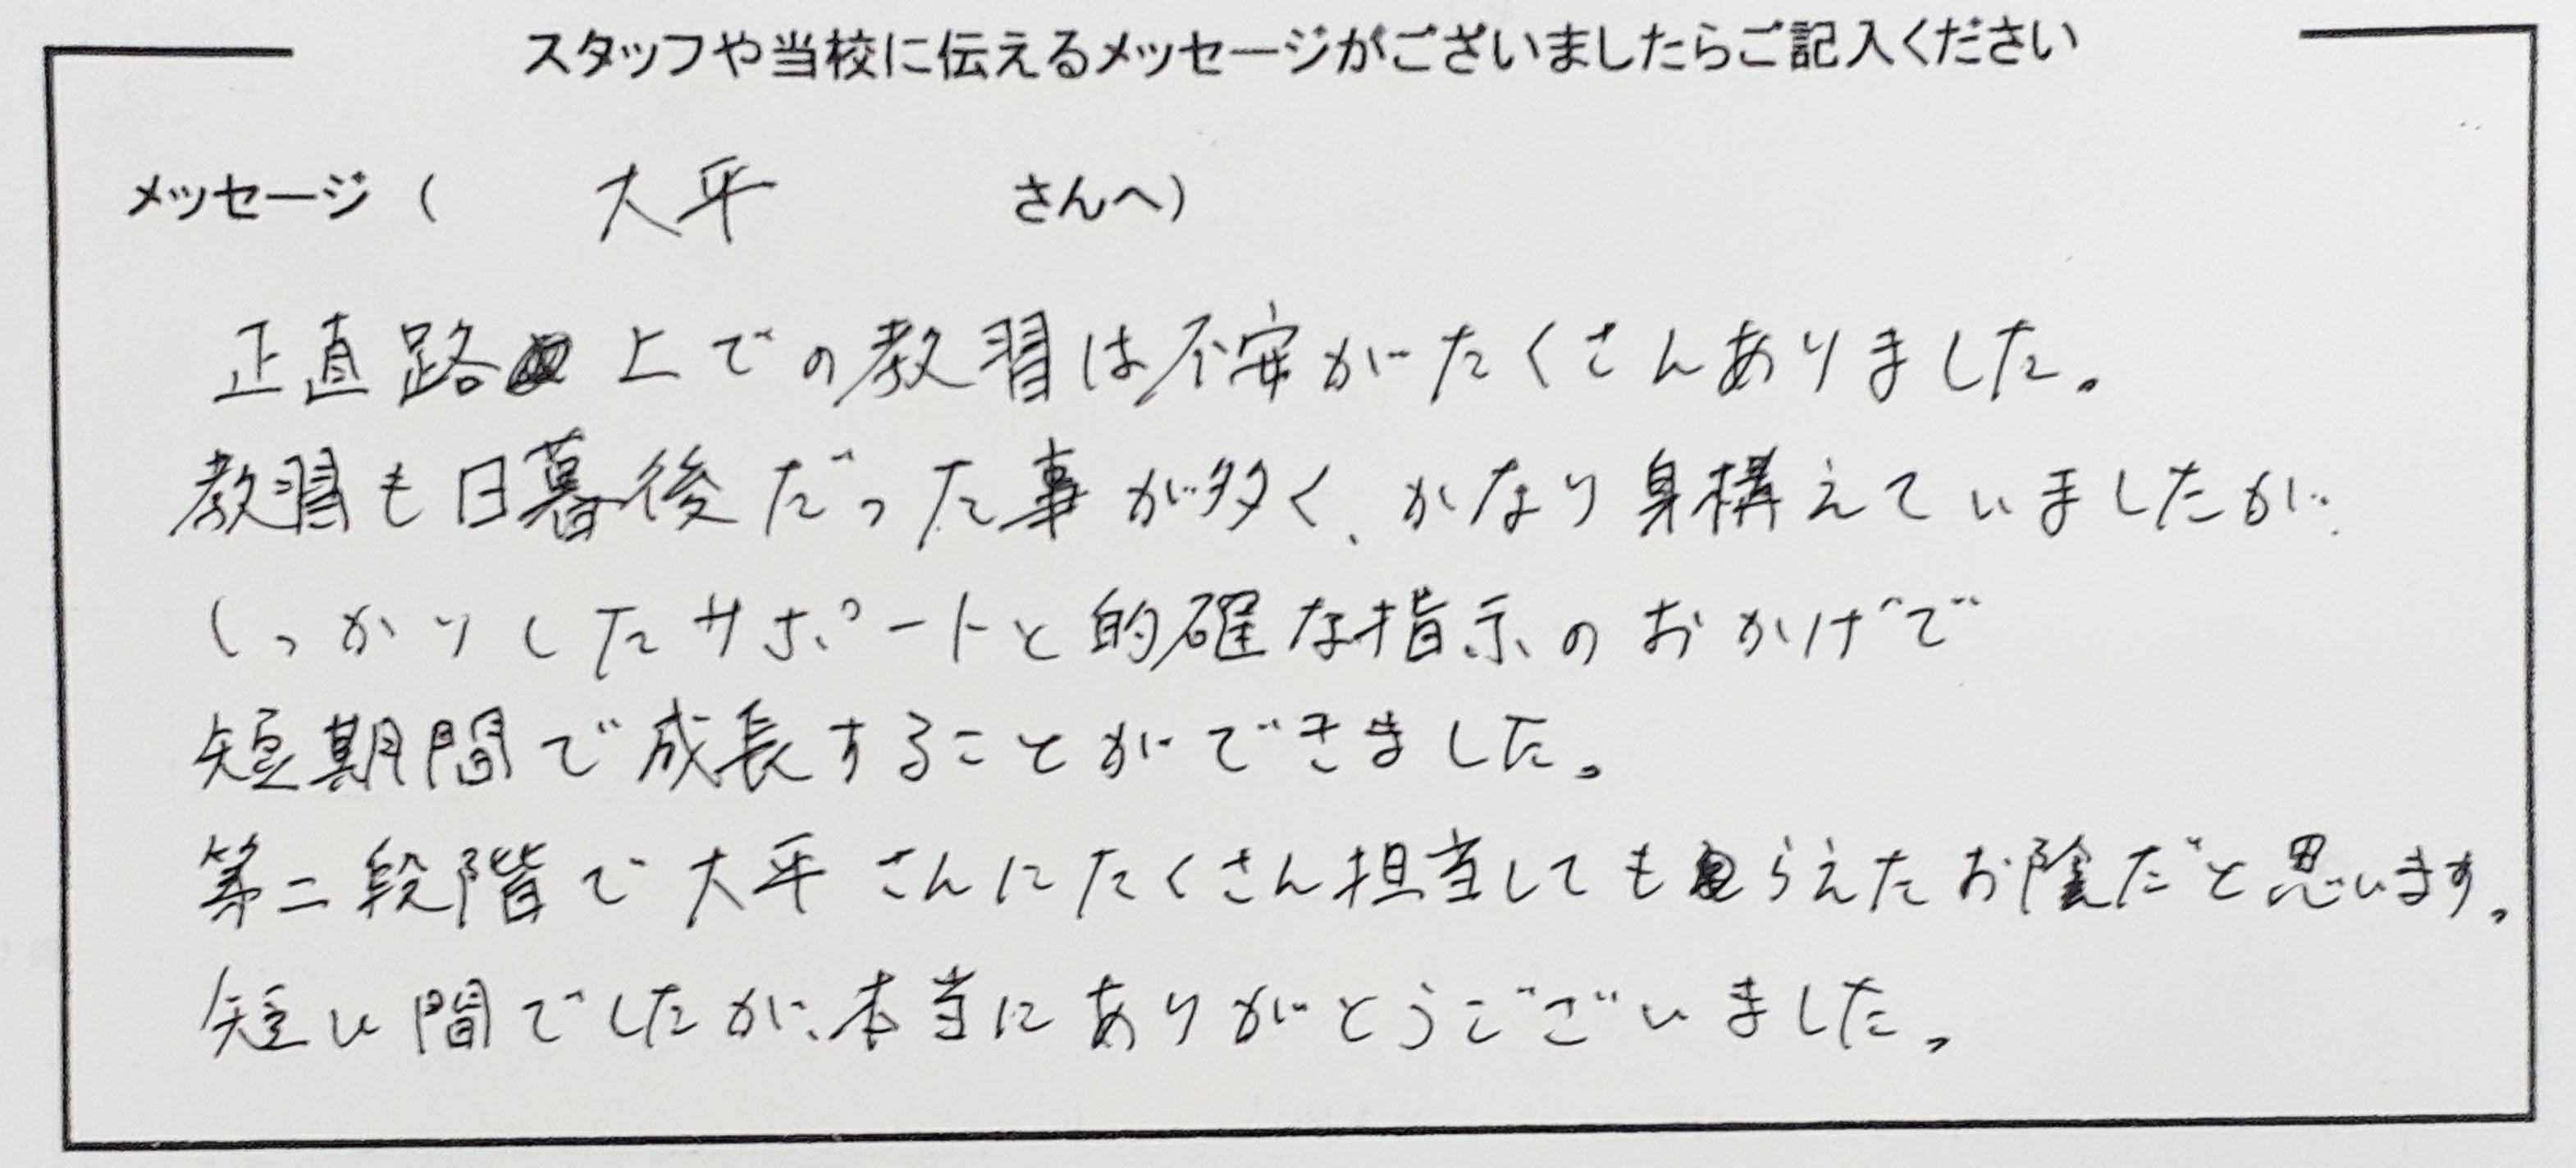 スタッフや当校に伝えるメッセージがございましたらご記入ください
メッセージ（ 大平 さんへ）
正直路上での教習は不安がたくさんありました。
教習も日暮後だった事が多く、かなり身構えていましたが、
しっかりしたサポートと的確な指示のおかげで
短期間で成長することができました。
第二段階で大平さんにたくさん担当してもらえたお陰だと思います。
短い間でしたが、本当にありがとうございました。